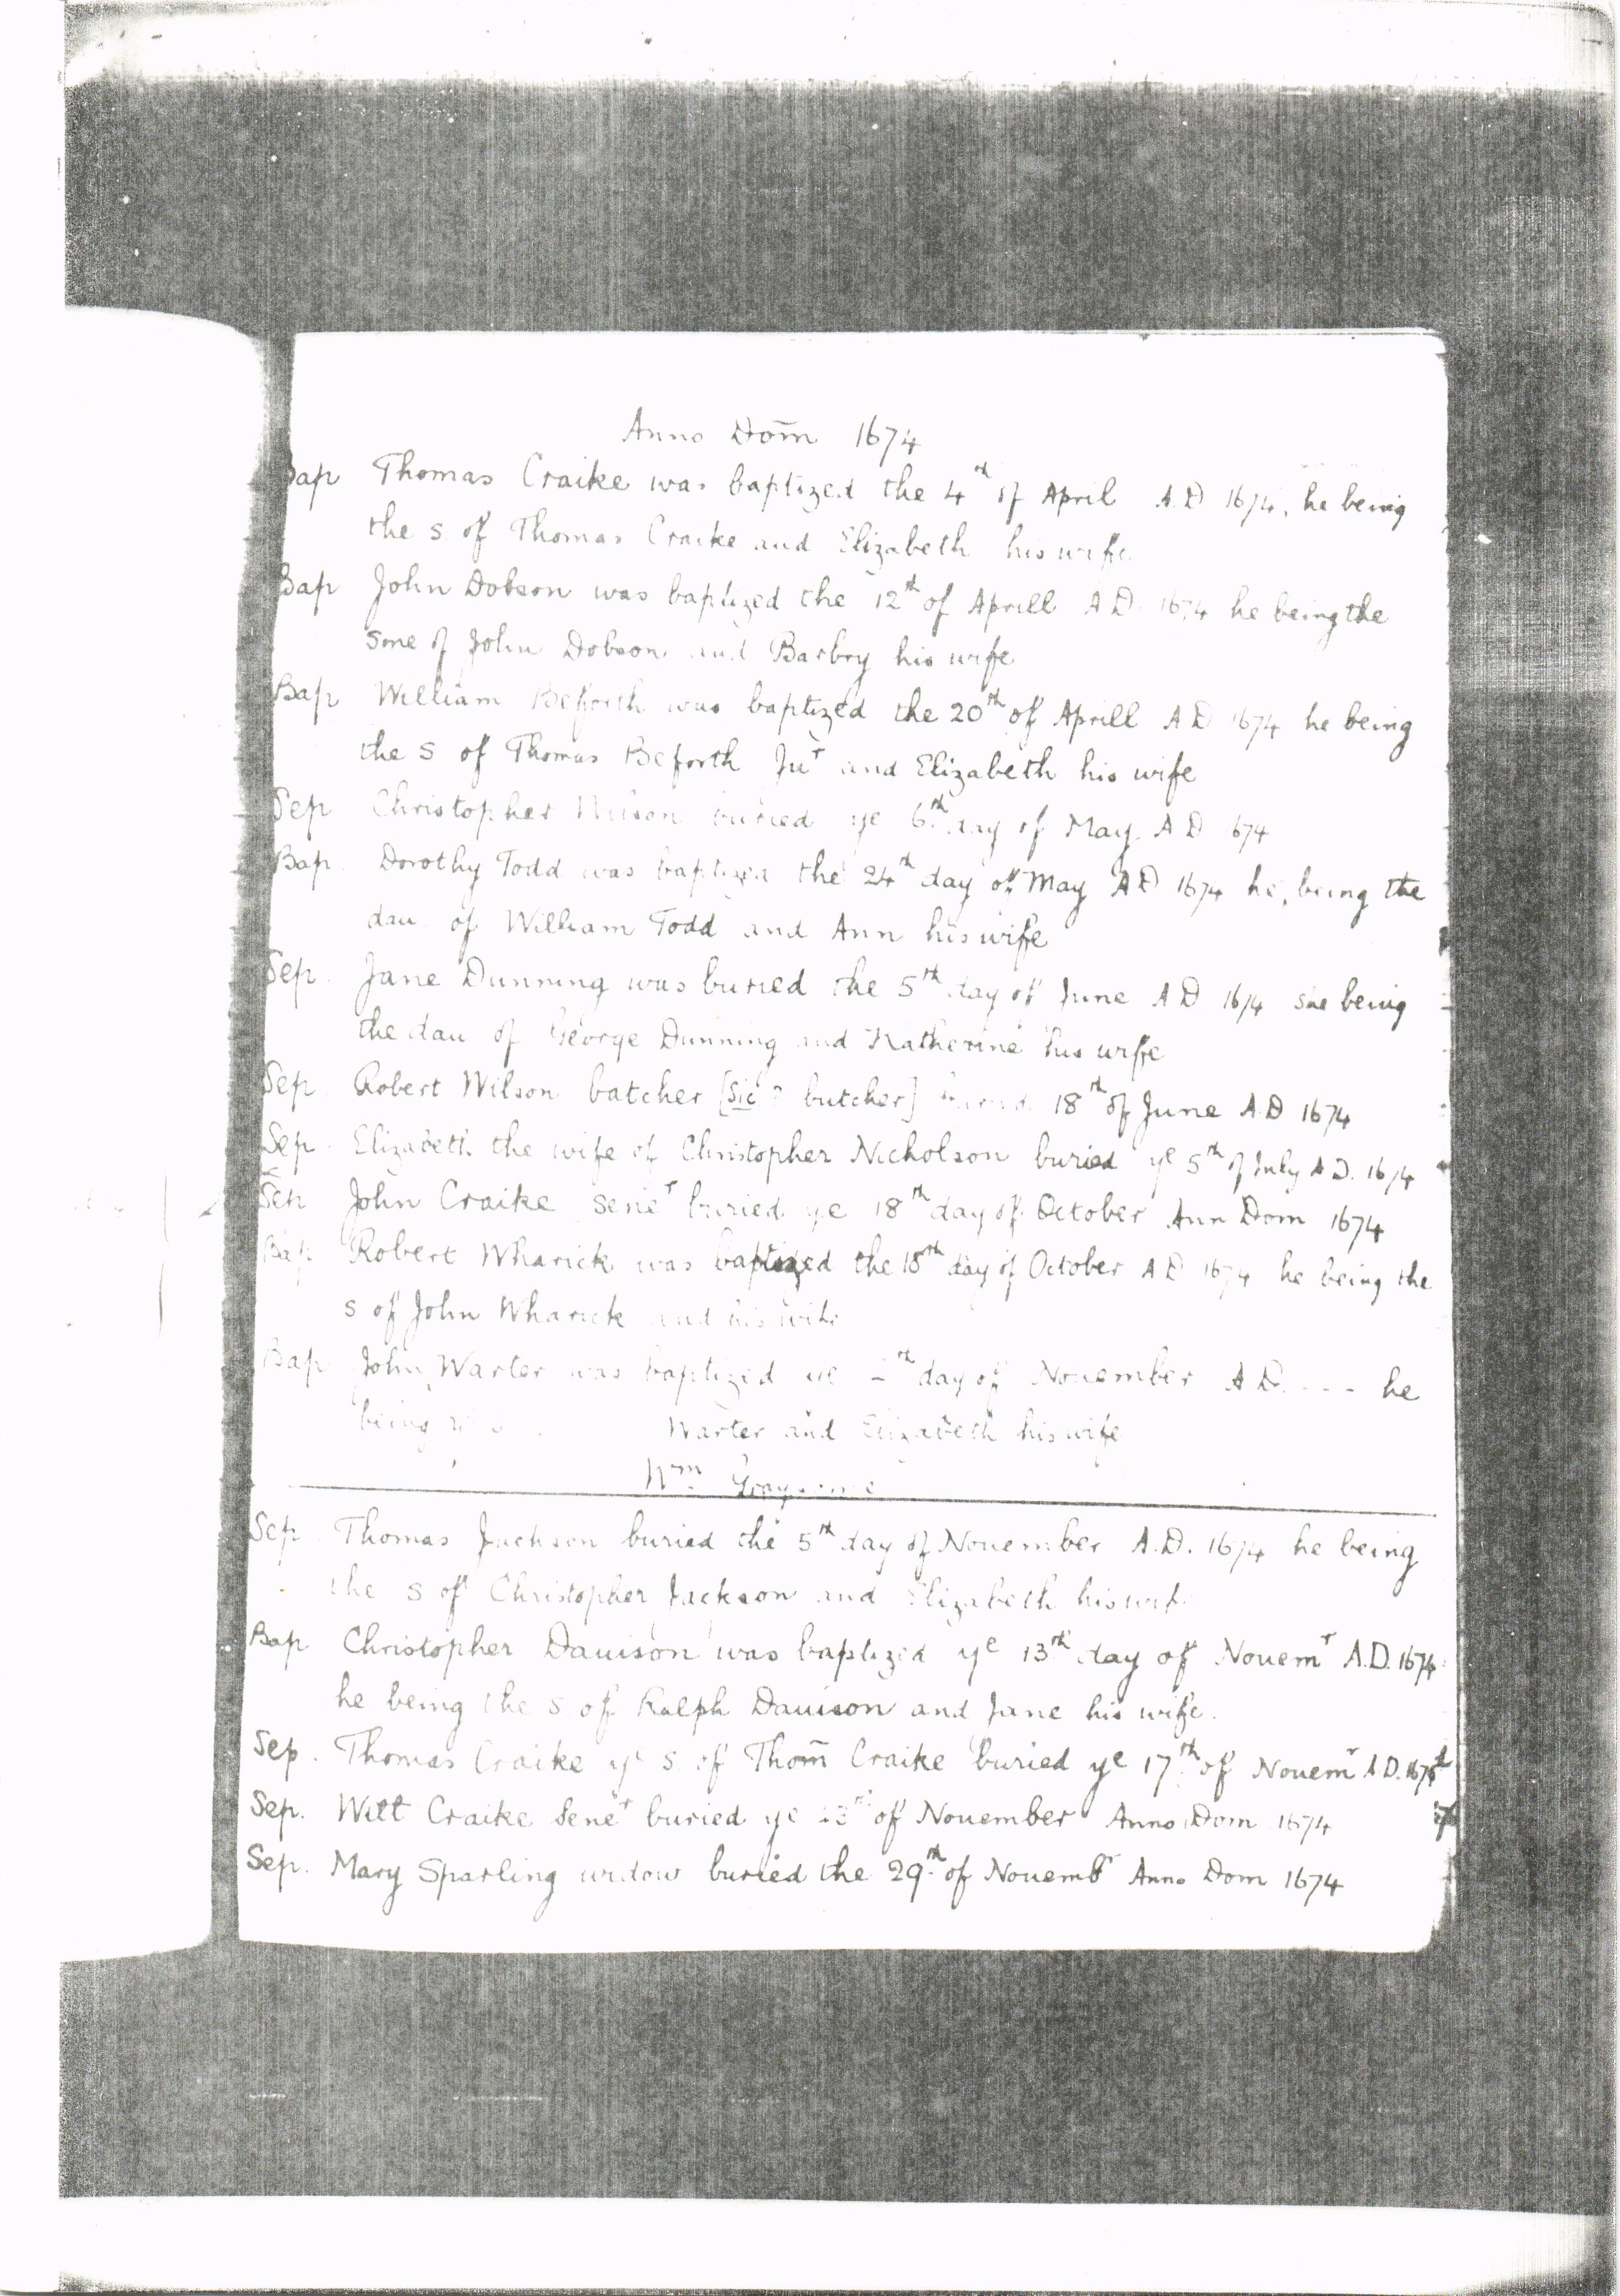 Anno Dom̄ 1674
Bap Thomas Craike was baptized the 4th of April A.D 1674, he being
the s. of Thomas Craike and Elizabeth his wife
Bap John Dobson was baptized the 12th of Aprill A D 1674 he being the
sone of John Dobson and Barbry his wife
Bap William Beforth was baptized the 20th of Aprill A D 1674 he being
the s of Thomas Beforth Jur and Elizabeth his wife
Sep Christopher Wilson buried ye 6th day of May A D 1674
Bap. Dorothy Todd was baptized the 24th day of May A D 1674 he, being the
dau of William Todd and Ann his wife
Sep. Jane Dunning was buried the 5th day of June A D 1674 she being
the dau of George Dunning and Katherine his wife
Sep. Robert Wilson batcher [sic ? butcher] buried 18th of June A.D 1674
Sep. Elizabeth the wife of Christopher Nicholson buried ye 5th of July A D. 1674
Sep John Craike Sener buried ye 18th day of October Ann Dom 1674
Bap Robert Wharick was baptized the 18th day of October A D 1674 he being the
s of John Wharick and his wife
Bap John Warter was baptized ye - th day of November A D. --- he
being Warter and Elizabeth his wife
Wm
Sep. Thomas Jackson buried the 5th day of Nouember A.D. 1674 he being
the s of Christopher Jackson and Elizabeth his wife
Bap Christopher Dauison was baptized ye 13th day of Nouemr A.D. 1674
he being the s. of Ralph Dauison and Jane his wife.
Sep. Thomas Craike ye s. of Thom̄ Craike buried ye 17th of Nouemr A.D.
Sep. Witt Craike Sener buried ye of Nouember Anno Dom 1674
Sep. Mary Sparling widow buried the 29th of Nouembr Anno Dom 1674